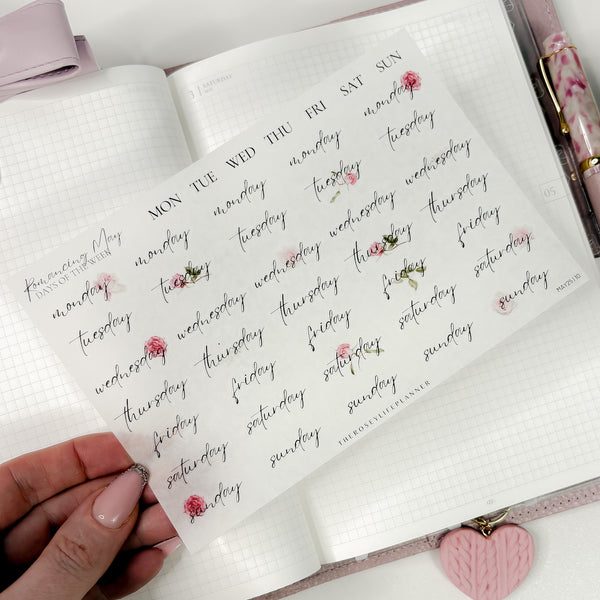 SATURDAY
05
Romancing May
DAYS OF THE WEEK
MON TUE WED THU FRI SAT SUN
monday monday monday monday monday
tuesday tuesday tuesday tuesday tuesday
wednesday wednesday wednesday wednesday wednesday
thursday thursday thursday thursday thursday
friday friday friday friday friday
saturday saturday saturday saturday saturday
sunday sunday sunday sunday sunday
THEROSEYLIFEPLANNER